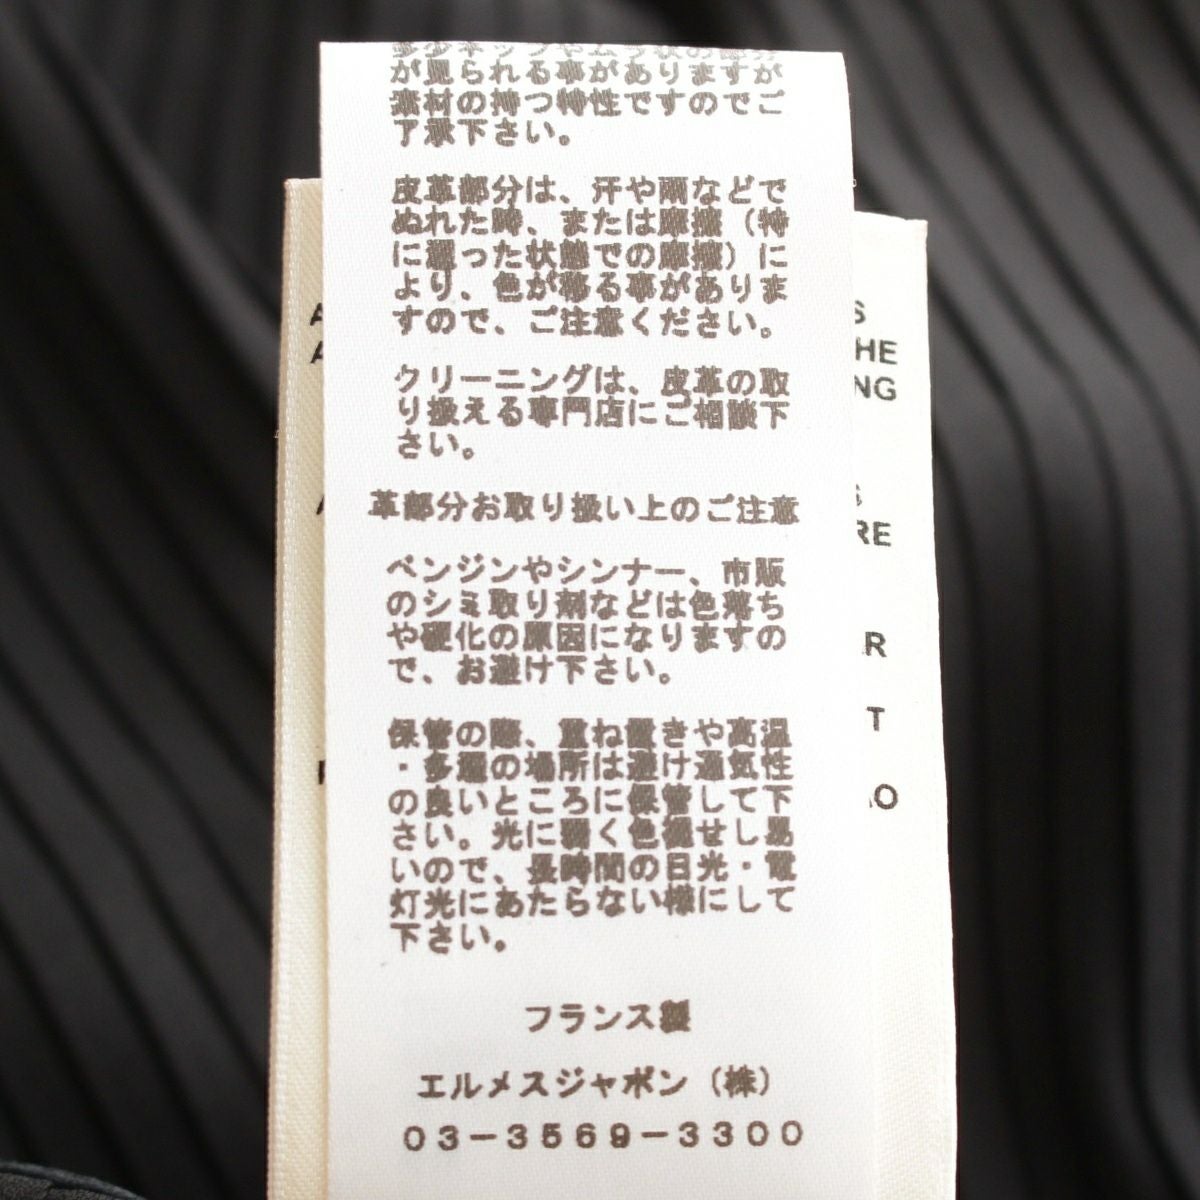 多少ネップやムラ状の部分
が見られる事がありますが
素材の持つ特性ですのでご
了承下さい。
皮革部分は、汗や雨などで
ぬれた時、または摩擦（特
に湿った状態での摩擦）に
より、色が移る事がありま
すので、ご注意ください。
クリーニングは、皮革の取
り扱える専門店にご相談下
さい。
革部分お取り扱い上のご注意
ベンジンやシンナー、市販
のシミ取り剤などは色落ち
や硬化の原因になりますの
で、お避け下さい。
保管の際、重ね置きや高温
・多湿の場所は避け通気性
の良いところに保管して下
さい。光に弱く色褪せし易
いので、長時間の日光・電
灯光にあたらない様にして
下さい。
フランス製
エルメスジャポン（株）
03-3569-3300
S
HE
NG
RE
R
T